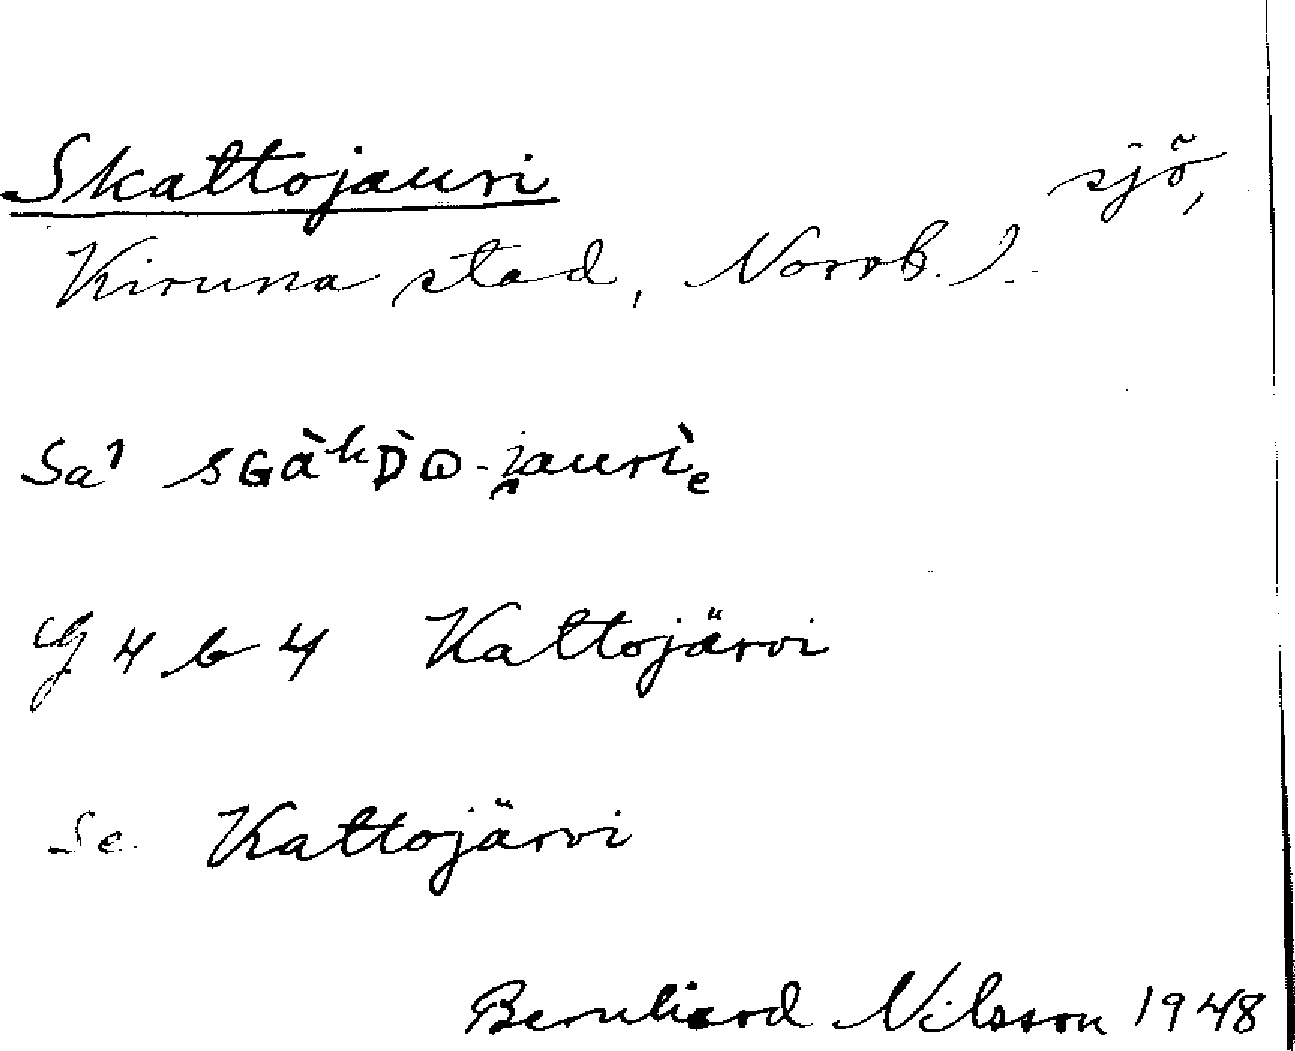 Skattojauri sjö,
Kiruna stad, Norrb. l.
Sa¹ sGàʰD̀ɷ-jauriè
G 4 b 4 Kattojärvi
Se. Kattojärvi
Bernhard Nilsson 1948